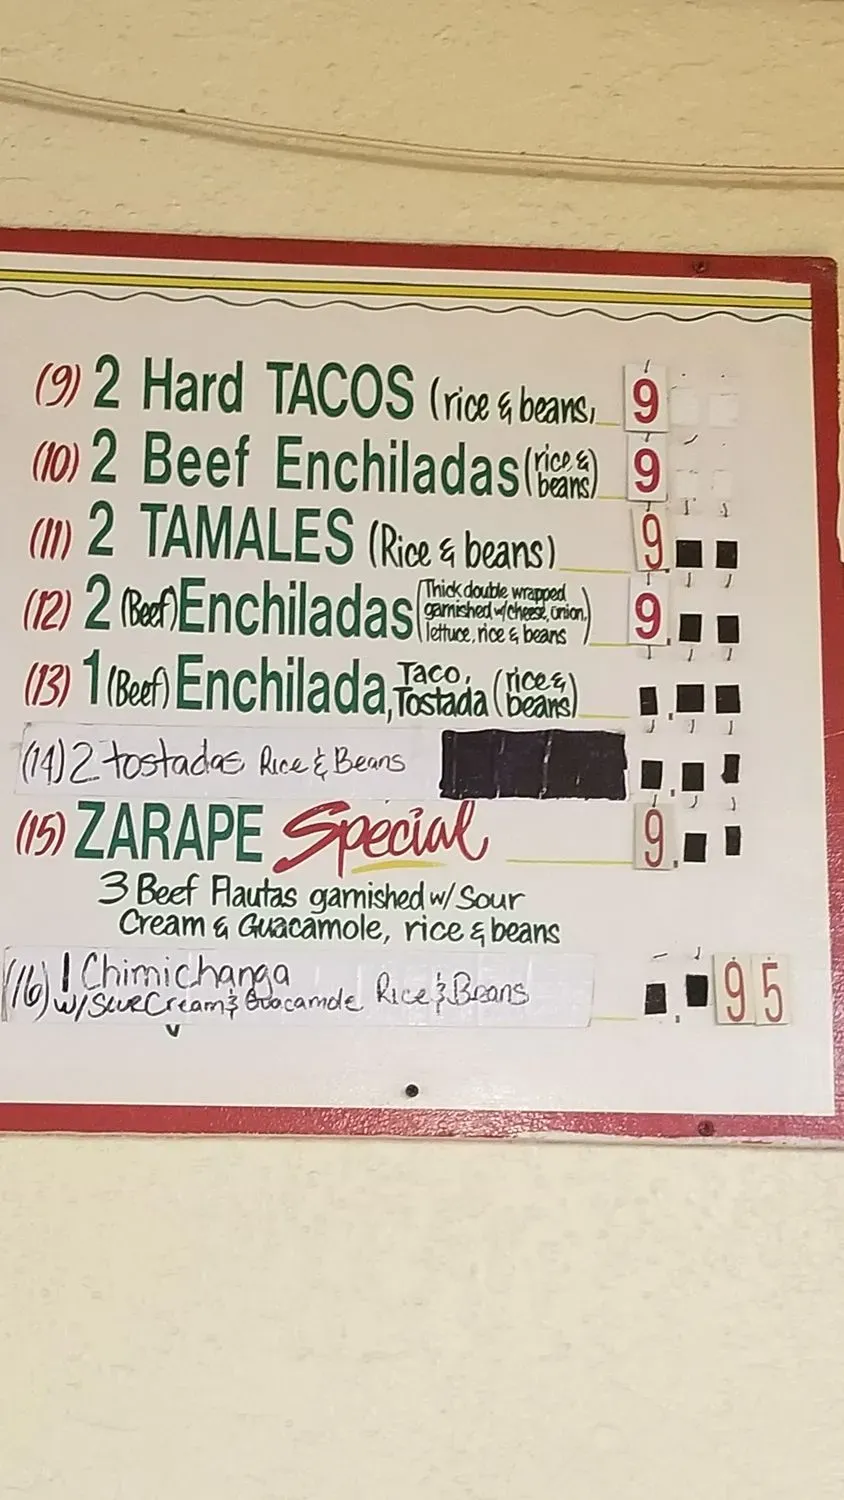 (9) 2 Hard TACOS (rice & beans, 9
(10) 2 Beef Enchiladas (rice & beans) 9
(11) 2 TAMALES (Rice & beans) 9.
(12) 2 (Beef) Enchiladas (Thick double wrapped garnished w/cheese, onion, lettuce, rice & beans) 9.
(13) 1 (Beef) Enchilada, Taco, Tostada (rice & beans) .
(14) 2 tostadas Rice & Beans .
(15) ZARAPE Special 9.
3 Beef Flautas garnished w/ Sour
Cream & Guacamole, rice & beans
(16) 1 Chimichanga
w/ Sour Cream & Guacamole Rice & Beans . 95